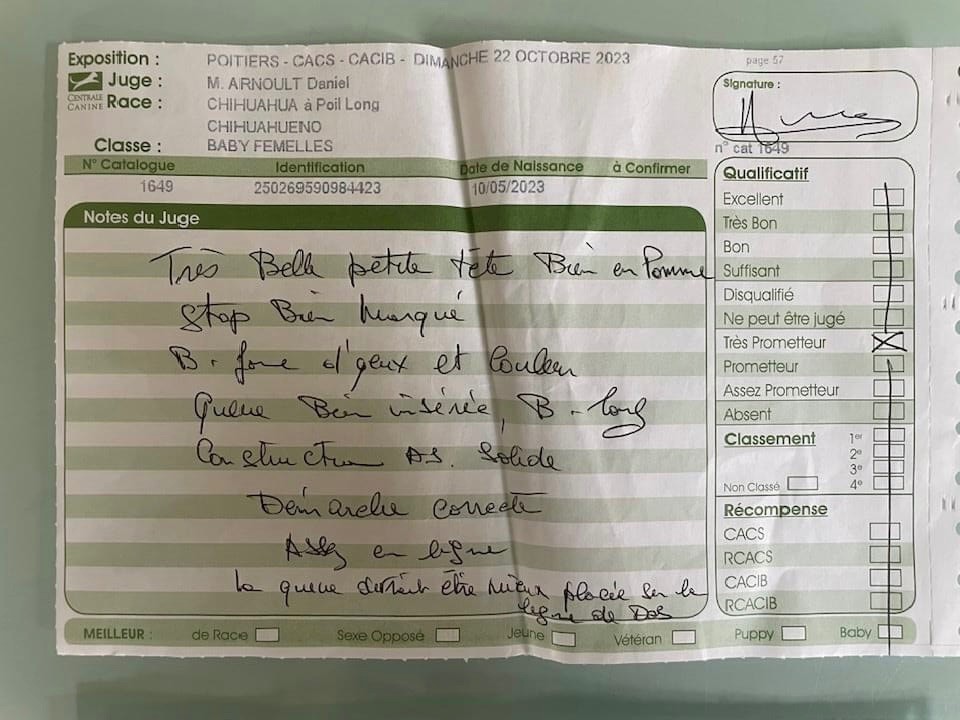 Exposition : POITIERS - CACS - CACIB - DIMANCHE 22 OCTOBRE 2023
page 57
CENTRALE CANINE
Juge : M. ARNOULT Daniel
Race : CHIHUAHUA à Poil Long
CHIHUAHUENO
Classe : BABY FEMELLES
Signature :
n° cat 1649
N° Catalogue Identification Date de Naissance à Confirmer
1649 250269590984423 10/05/2023
Notes du Juge
Très Belle petite tête Bien en Pomme
Stop Bien Marqué
B. forme d'yeux et Couleur
Queue Bien insérée, B. long
Construction AS. Solide
Démarche correcte
Assez en ligne
la queue devrait être mieux placée sur la
ligne de Dos
Qualificatif
Excellent
Très Bon
Bon
Suffisant
Disqualifié
Ne peut être jugé
Très Prometteur X
Prometteur
Assez Prometteur
Absent
Classement 1er
2e
3e
Non Classé 4e
Récompense
CACS
RCACS
CACIB
RCACIB
MEILLEUR : de Race Sexe Opposé Jeune Vétéran Puppy Baby